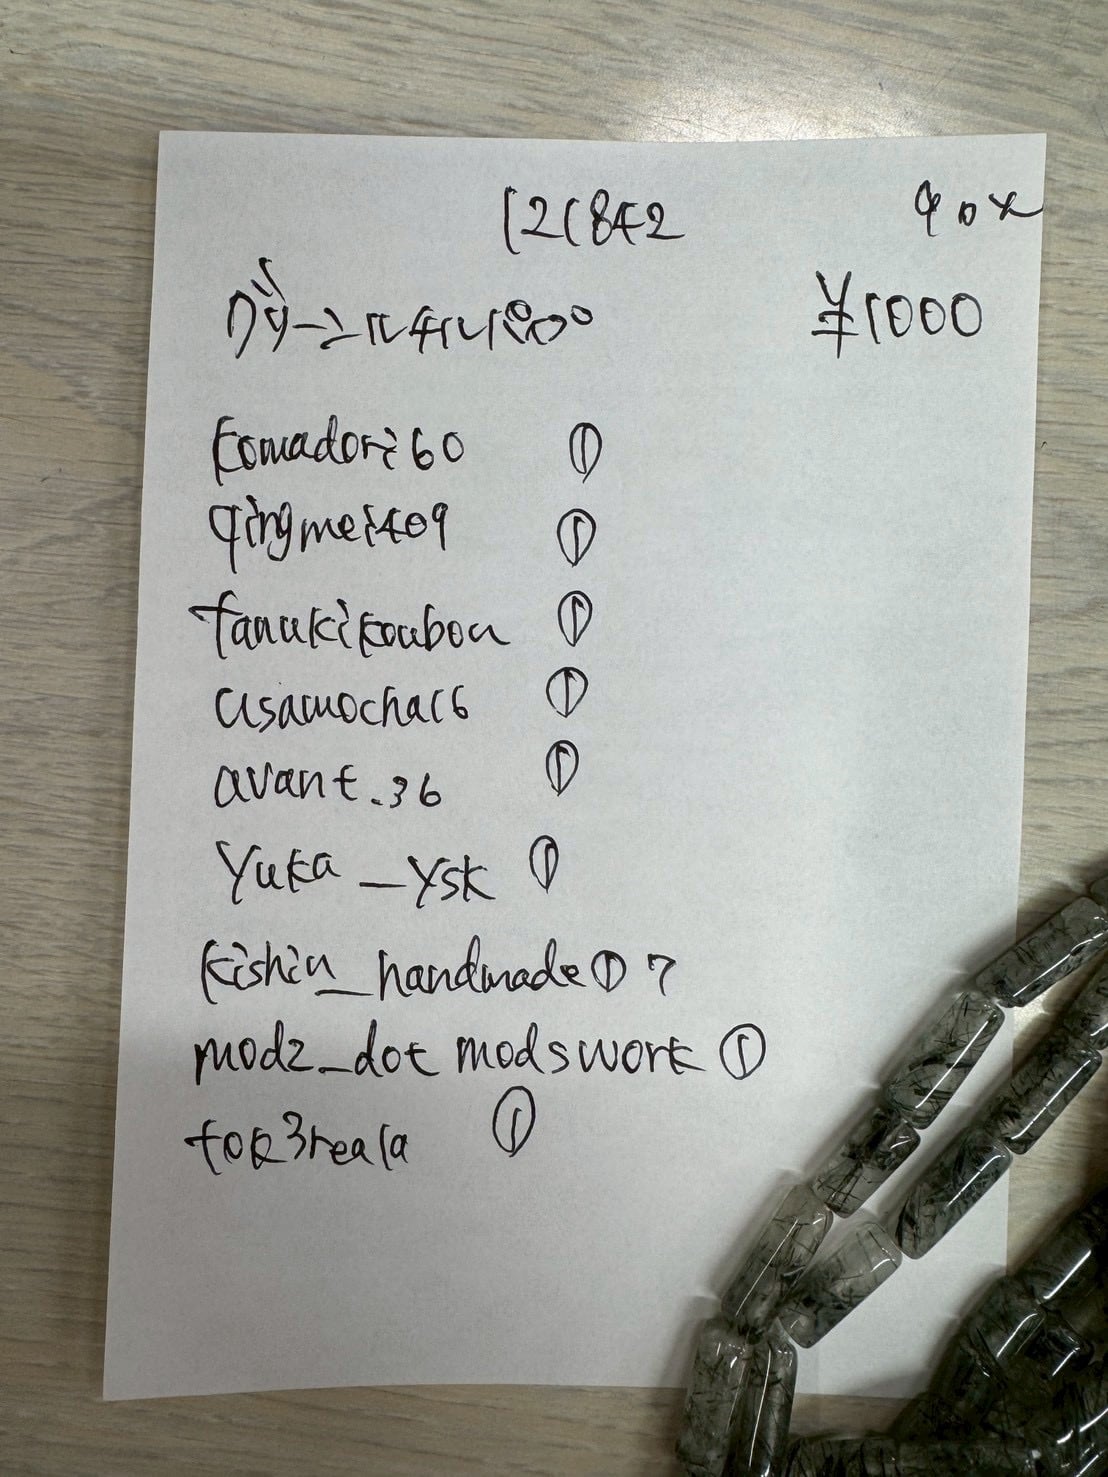 121842
グリーンルチル
¥1000
komadori60 ①
qingmei409 ①
tanukikoubou ①
usamocha16 ①
avant.36 ①
yuka_ysk ①
kishin_handmade ① 7
modz_dot modswork ①
tok3reala ①